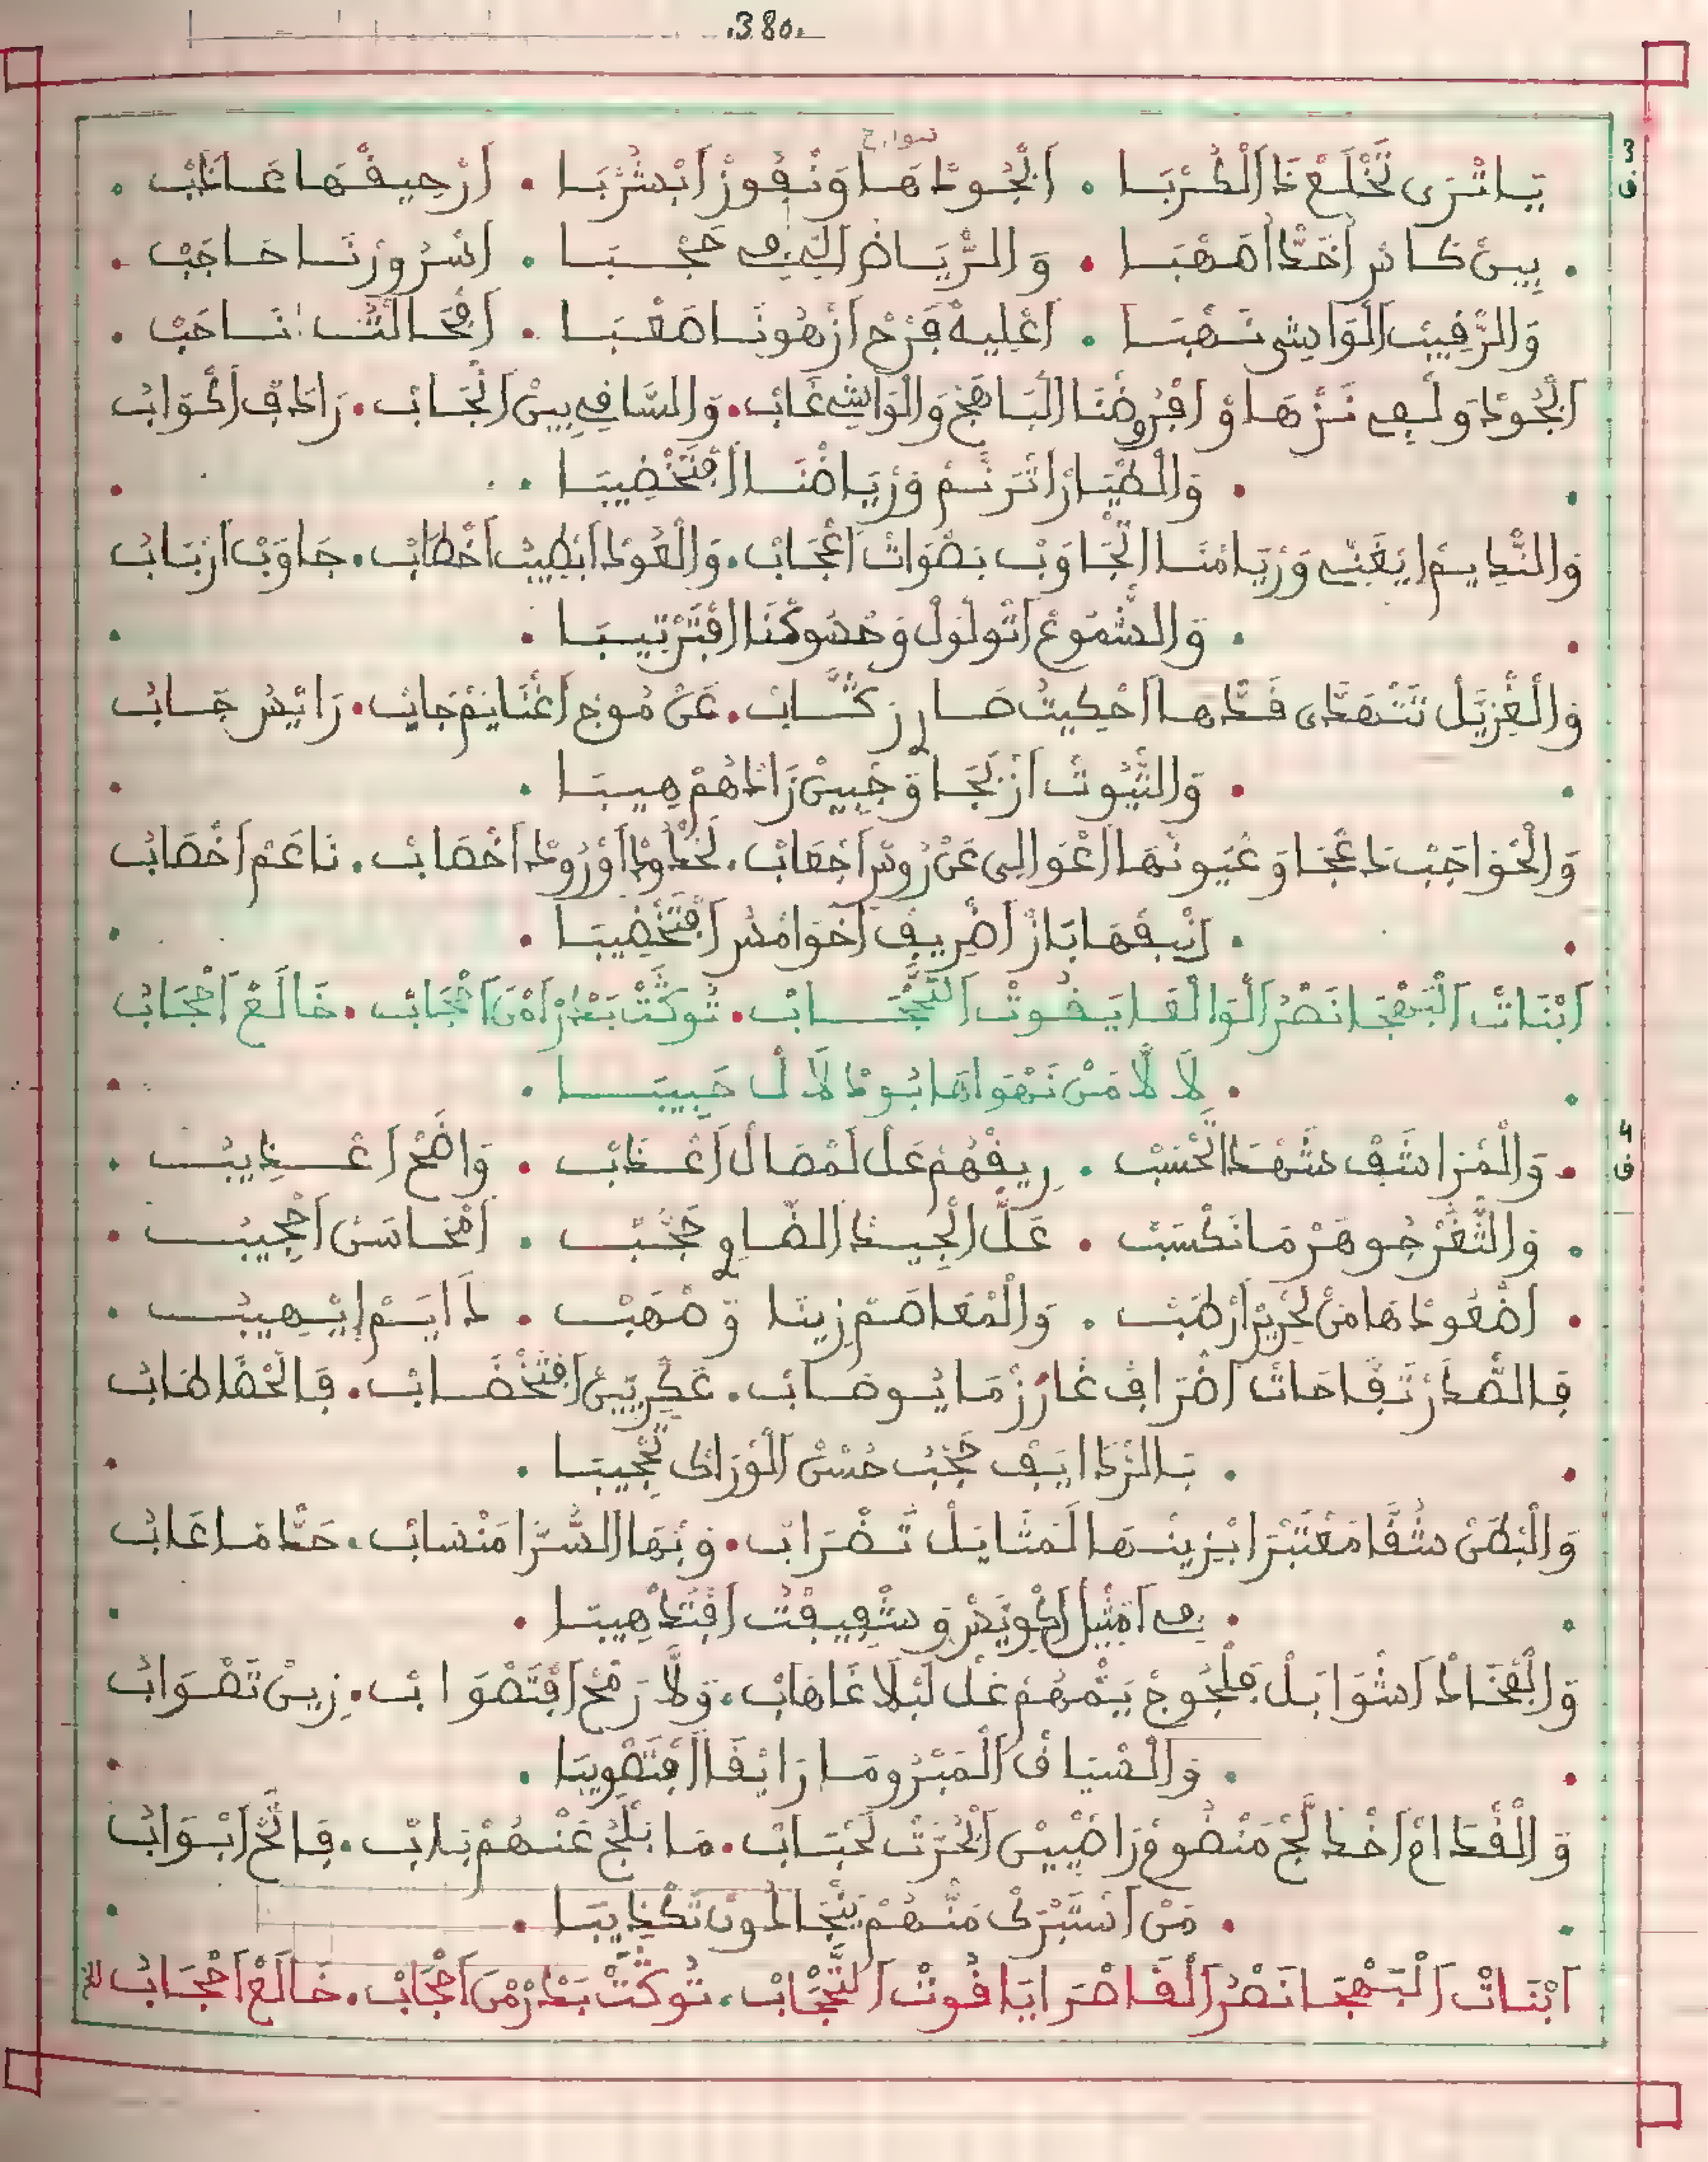 .380.
سوارح
3 ف
يَا تْرَى تَخْلَعْ ذَا الْكُرْبَا . الْجُودْهَا وَنْفُوزْ ابْشُرْبَا . ارْحِيقْهَا عَاذَبْ .
. بِينْ كَاسْ اخَدْ امَهْبَا . وَالرِّيَاضْ اللِّي حَجْبَا . اسْرُورْنَا حَاجَبْ .
وَالرْقِيبْ الْوَاشِي نَهْبَا . اعْلِيهْ فَرْحْ ازْهُونَا صَعْبَا . افْحَالْتُ نَاحَبْ .
الْجُودْ وَلْفِي نَزْهَاوْ افْرُوضْنَا الْبَاهَجْ وَالْوَاشِي غَابْ . وَالسَّاقِي بِينْ انْجَابْ . رَادَفْ اكْوَابْ
. وَالطْيَارْ اتَرْنَمْ وَرْيَاضْنَا افْتَخْضِيبَا .
وَالنْدِيمْ ايْغَنِّي وَرْيَامْنَا اتْجَاوَبْ بَصْوَاتْ اعْجَابْ . وَالْعُودْ ابْطِيبْ اخْطَابْ . جَاوَبْ ارْبَابْ
. وَالشْمُوعْ اتْوَلْوَلْ وَحْسُوكْنَا افْتَرْتِيبَا .
وَالْغْزِيَّلْ تَتْهَدَّى قَدّْهَا احْكِيتُ صَارِي زكْتَابْ . عَنْ مُوجْ اغْنَايَمْ جَابْ . رَايَسْ جَابْ
. وَالتْيُوتْ ازَنْجَا وَجْبِينْ زَادْهُمْ هِيبَا .
وَالْحْوَاجَبْ دَعْجَا وَعْيُونْهَا اعْوَالِي عَنْ رُوسْ اجْعَابْ . لَخْدُودْ اوْرُودْ اخْصَابْ . نَاعَمْ اخْصَابْ
. انْيفْهَا بَازْ اظْرِيفْ اخْوَامْسُ افْتَخْضِيبَا .
ابْنَاتْ الْبَهْجَا نَصْرُ الْوَالْعَا يَفُوتْ التّْجْنَابْ . تُوكَتْ بَدْرْ امْنَ احْجَابْ . خَالَعْ احْجَابْ
. لَا لَّا مَنْ نَهْوَاهَا بُودْلَالْ حَبِيبَا .
4 ف
. وَالْمْرَاشَفْ شَهْدَ الْحْسَبْ . رِيقْهُمْ عَلْ لَمْصَالْ اعْذَبْ . وَاضَحْ اعْذِيبْ .
. وَالثَّغْرْ جُوهَرْ مَا نَكْسَبْ . عَلَّ الْجِيدْ الضَّاوِي حَجْبْ . امْحَاسَنْ احْجِيبْ .
. اضْعُودْهَا مَنْ لَحْرِيرْ ارْطَبْ . وَالْمْعَاصَمْ زِينَا وَصْهَبْ . دَايَمْ ايْهِيبْ .
فَالصْدَرْ تَفَّاحَاتْ اضْرَافْ غَارَزْ مَا يُوصَابْ . عَكْرِيِّينْ افْتَخْضَابْ . فَالْخْفَا طَابْ
. بَالرْدَايَفْ حَجْبُ حُسْنْ الْوْرَاكْ تَحْجِيبَا .
وَالْبْطَنْ شُقَّا مَعْتَبْرَا ايْزِينْهَا لَمْثَايَلْ تَضْرَابْ . وَبْهَا السُّرَّا مَنْسَابْ . حَدّْ مَا عَابْ
. مِي امْثِيلْ الْحْوِيَّسْ وَشْقِيقْتُ افْتَدْهِيبَا .
وَالْفْخَادْ اشْوَابَلْ فَلْجُوجْ يَمّْهُمْ عَلْ لَبْلَاغَا هَابْ . وَلَّا رَمْحْ افْتَصْوَابْ . زِينْ تَصْوَابْ
. وَالسْيَاقْ الْمَبْرُومَا رَايْقَا افْتَصْوِيبَا .
وَالْقْدَامْ اخْدَلَّجْ مَنْضُومْ رَاضْيِينْ الْحُرَّتْ لَحْبَابْ . مَا نَلْجْ عَنْهُمْ بَابْ . فَاتْحْ ابْوَابْ
. مَنْ اسْتَبْرَكْ مَنّْهُمْ يَنْجَا دُونْ تَكْذِيبَا .
ابْنَاتْ الْبَهْجَا نَصْرُ الْقَاصْرَا يَا فُوتْ التّْجْنَابْ . تُوكَتْ بَدْرْ مْنَ احْجَابْ . خَالَعْ احْجَابْ الخ